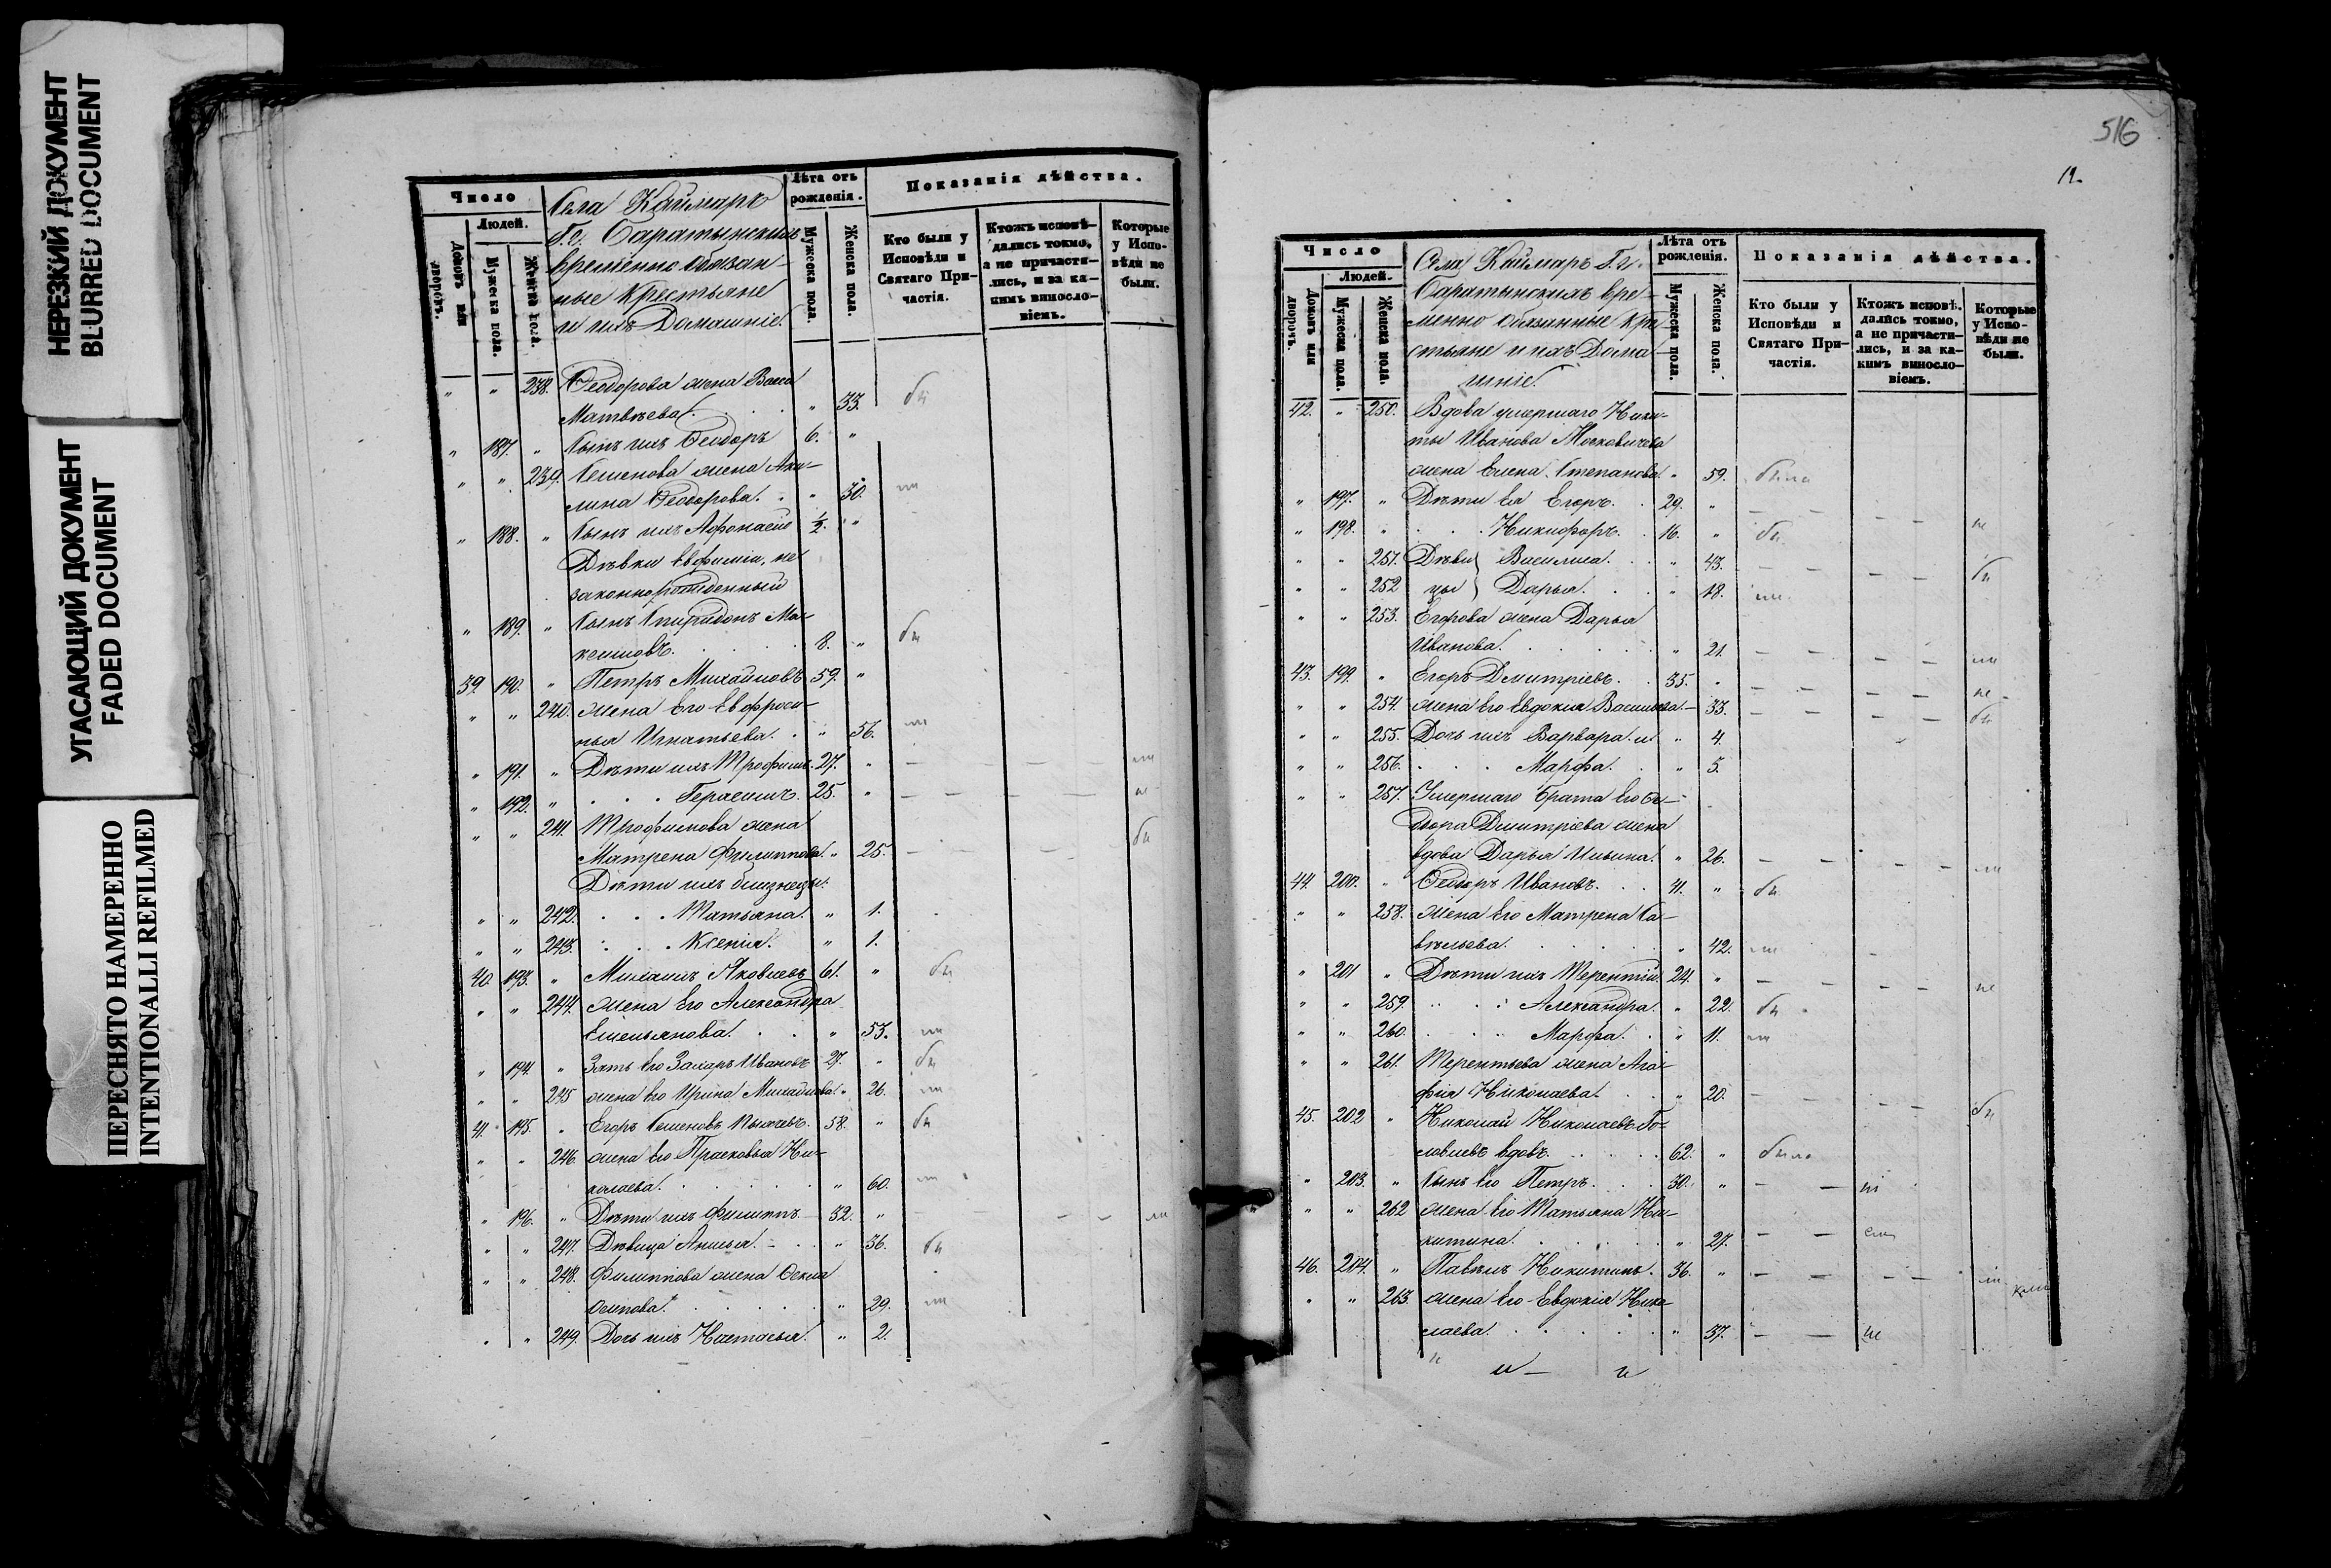 НЕРЕЗКИЙ ДОКУМЕНТ
BLURRED DOCUMENT
УГАСАЮЩИЙ ДОКУМЕНТ
FADED DOCUMENT
ПЕРЕСНЯТО НАМЕРЕННО
INTENTIONALLI REFILMED
Число
Людей.
Домовъ или дворовъ.
Мужеска пола.
Женска пола.
Села Каймаръ
Г.г. Саратынскихъ
временно обязан-
ные Крестьяне
и ихъ Домашніе.
Лѣта отъ рожденія.
Мужеска пола.
Женска пола.
Показанія дѣйства.
Кто были у Исповѣди и Святаго При-
частія.
Ктожъ исповѣ-
дались токмо,
а не причасти-
лись, и за ка-
кимъ винословіемъ.
Которые
у Испо-
вѣди не
были.
" " 238. Ѳеодорова жена Васса
Матвѣева. " 33.
" 187. " Сынъ ихъ Ѳеодоръ 6. "
" " 239. Семенова жена Аку-
лина Ѳеодорова. " 30.
" 188. " Сынъ ихъ Афонасій ½. "
Дѣвки Евфиміи, не
законнорожденный
" 189. " Сынъ Спиридонъ Ма-
ксимовъ. 8. "
39. 190. " Петръ Михайловъ 59. "
" " 240. жена его Евфроси-
нья Игнатьева. " 56.
" 191. " Дѣти ихъ Трофимъ. 27. "
" 192. " Герасимъ. 25. "
" " 241. Трофимова жена
Матрена Филиппова. " 25.
Дѣти ихъ близнецы:
" " 242. Татьяна. " 1.
" " 243. Ксенія. " 1.
40. 193. " Михаилъ Яковлевъ 61. "
" " 244. жена его Александра
Емельянова. " 53.
" 194. " Зять его Захаръ Ивановъ 27. "
" " 245 жена его Ирина Михайлова. " 26.
41. 195. " Егоръ Семеновъ 58. "
" " 246. жена его Прасковья Ни-
колаева. " 60.
" 196. " Дѣти ихъ Филиппъ 32. "
" " 247. Дѣвица Анисья. " 36.
" " 248. Филиппова жена
Осипова. " 29.
" " 249. Дочь ихъ Настасья. " 2.
516
12.
Число
Людей.
Домовъ или дворовъ.
Мужеска пола.
Женска пола.
Села Каймаръ Г.г.
Саратынскихъ вре-
менно обязанные Кре-
стьяне и ихъ Дома-
шніе.
Лѣта отъ рожденія.
Мужеска пола.
Женска пола.
Показанія дѣйства.
Кто были у
Исповѣди и
Святаго При-
частія.
Ктожъ исповѣ.
дались токмо,
а не причасти-
лись, и за ка-
кимъ виносло-
віемъ.
Которые
у Испо-
вѣди не
были.
42. " 250. Вдова умершаго Ники-
ты Иванова
жена Елена Степанова. " 59. была
" 197. " Дѣти ея Егоръ. 29. "
" 198. " Никифоръ. 16. "
" " 251. Дѣви- Василиса. " 43.
" " 252 цы Дарья. " 18.
" " 253. Егорова жена Дарья
Иванова. " 21.
43. 199. " Егоръ Дмитріевъ. 35. "
" " 254. жена его Евдокія Васильева. 33.
" " 255. Дочь ихъ Варвара. и " 4.
" " 256. Марфа. " 5.
" " 257. Умершаго брата его
Дмитріева жена
вдова Дарья Ильина. " 26.
44. 200. " Ѳедоръ Ивановъ. 41. "
" " 258. жена его Матрена Са-
вельева. " 42.
" 201 " Дѣти ихъ Терентій. 24. "
" " 259. Александра. " 22.
" " 260. Марфа. " 11.
" " 261. Терентьева жена Ага-
фія Николаева. " 20.
45. 202 " Николай Николаевъ Го-
ловлевъ вдовъ. 62. " былъ
" 203. " Сынъ его Петръ. 30. "
" " 262 жена его Татьяна Ни-
китина. " 27.
46. 204. " Павелъ Никитинъ. 36. "
" " 263. жена его Евдокія Нико-
лаева. " 37.